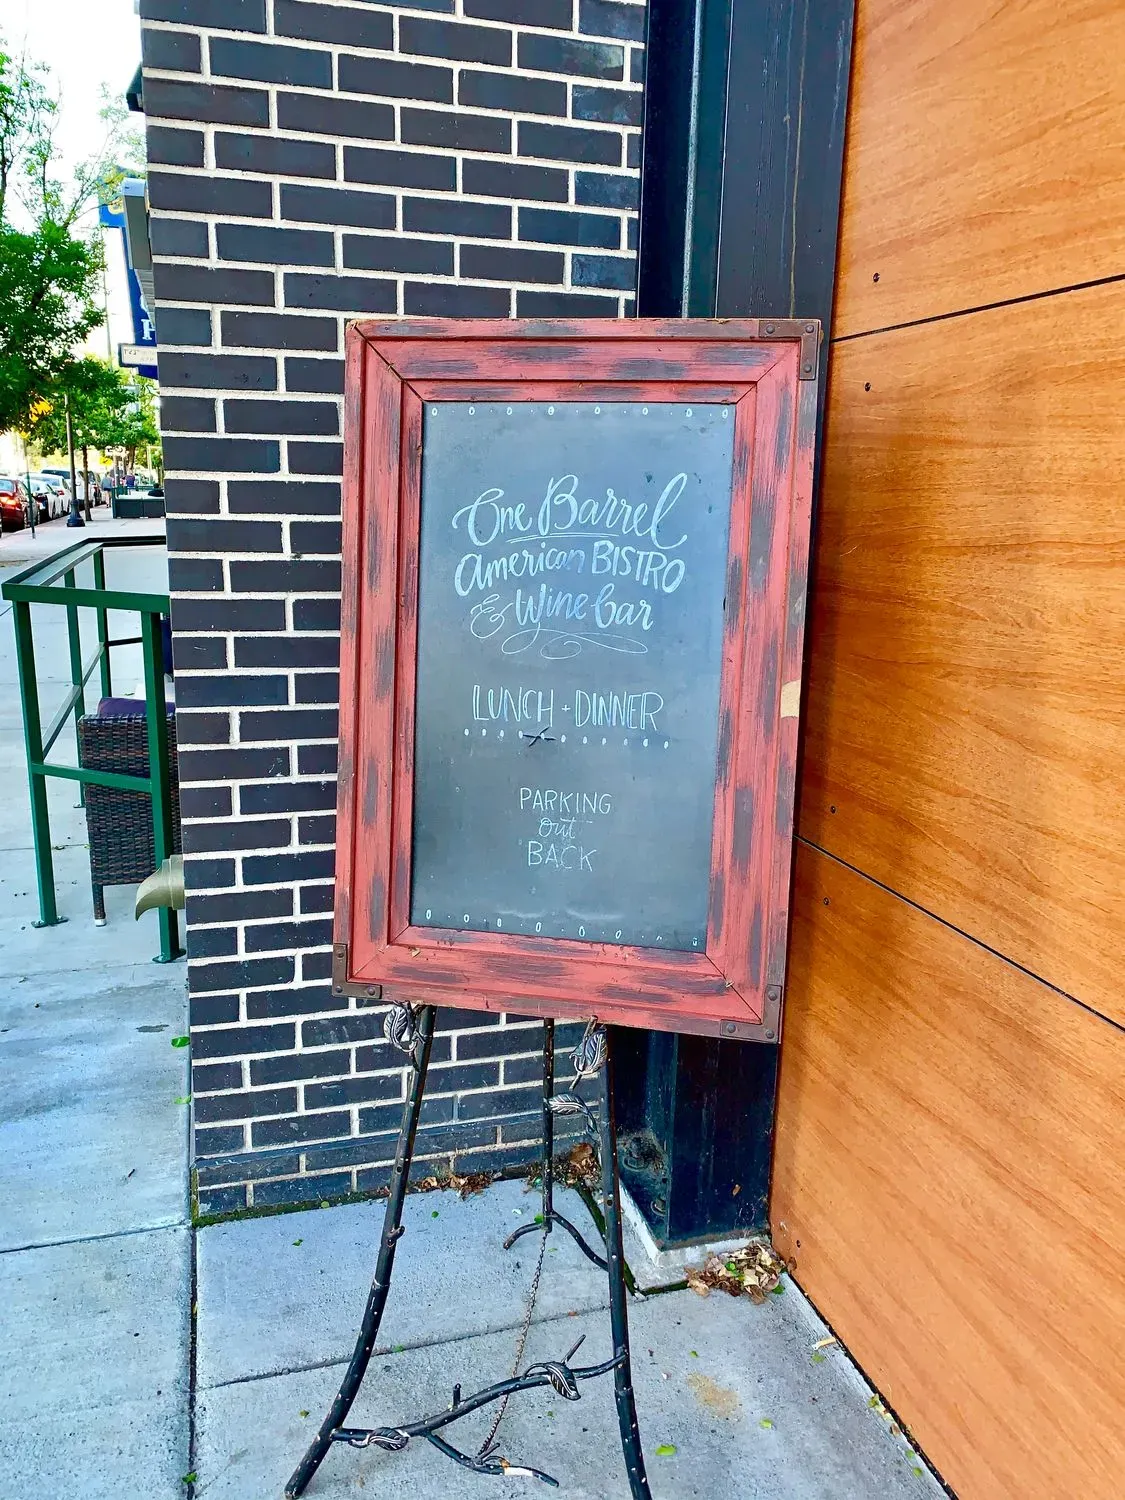 One Barrel
American BISTRO
& Wine bar
LUNCH + DINNER
PARKING
out
BACK